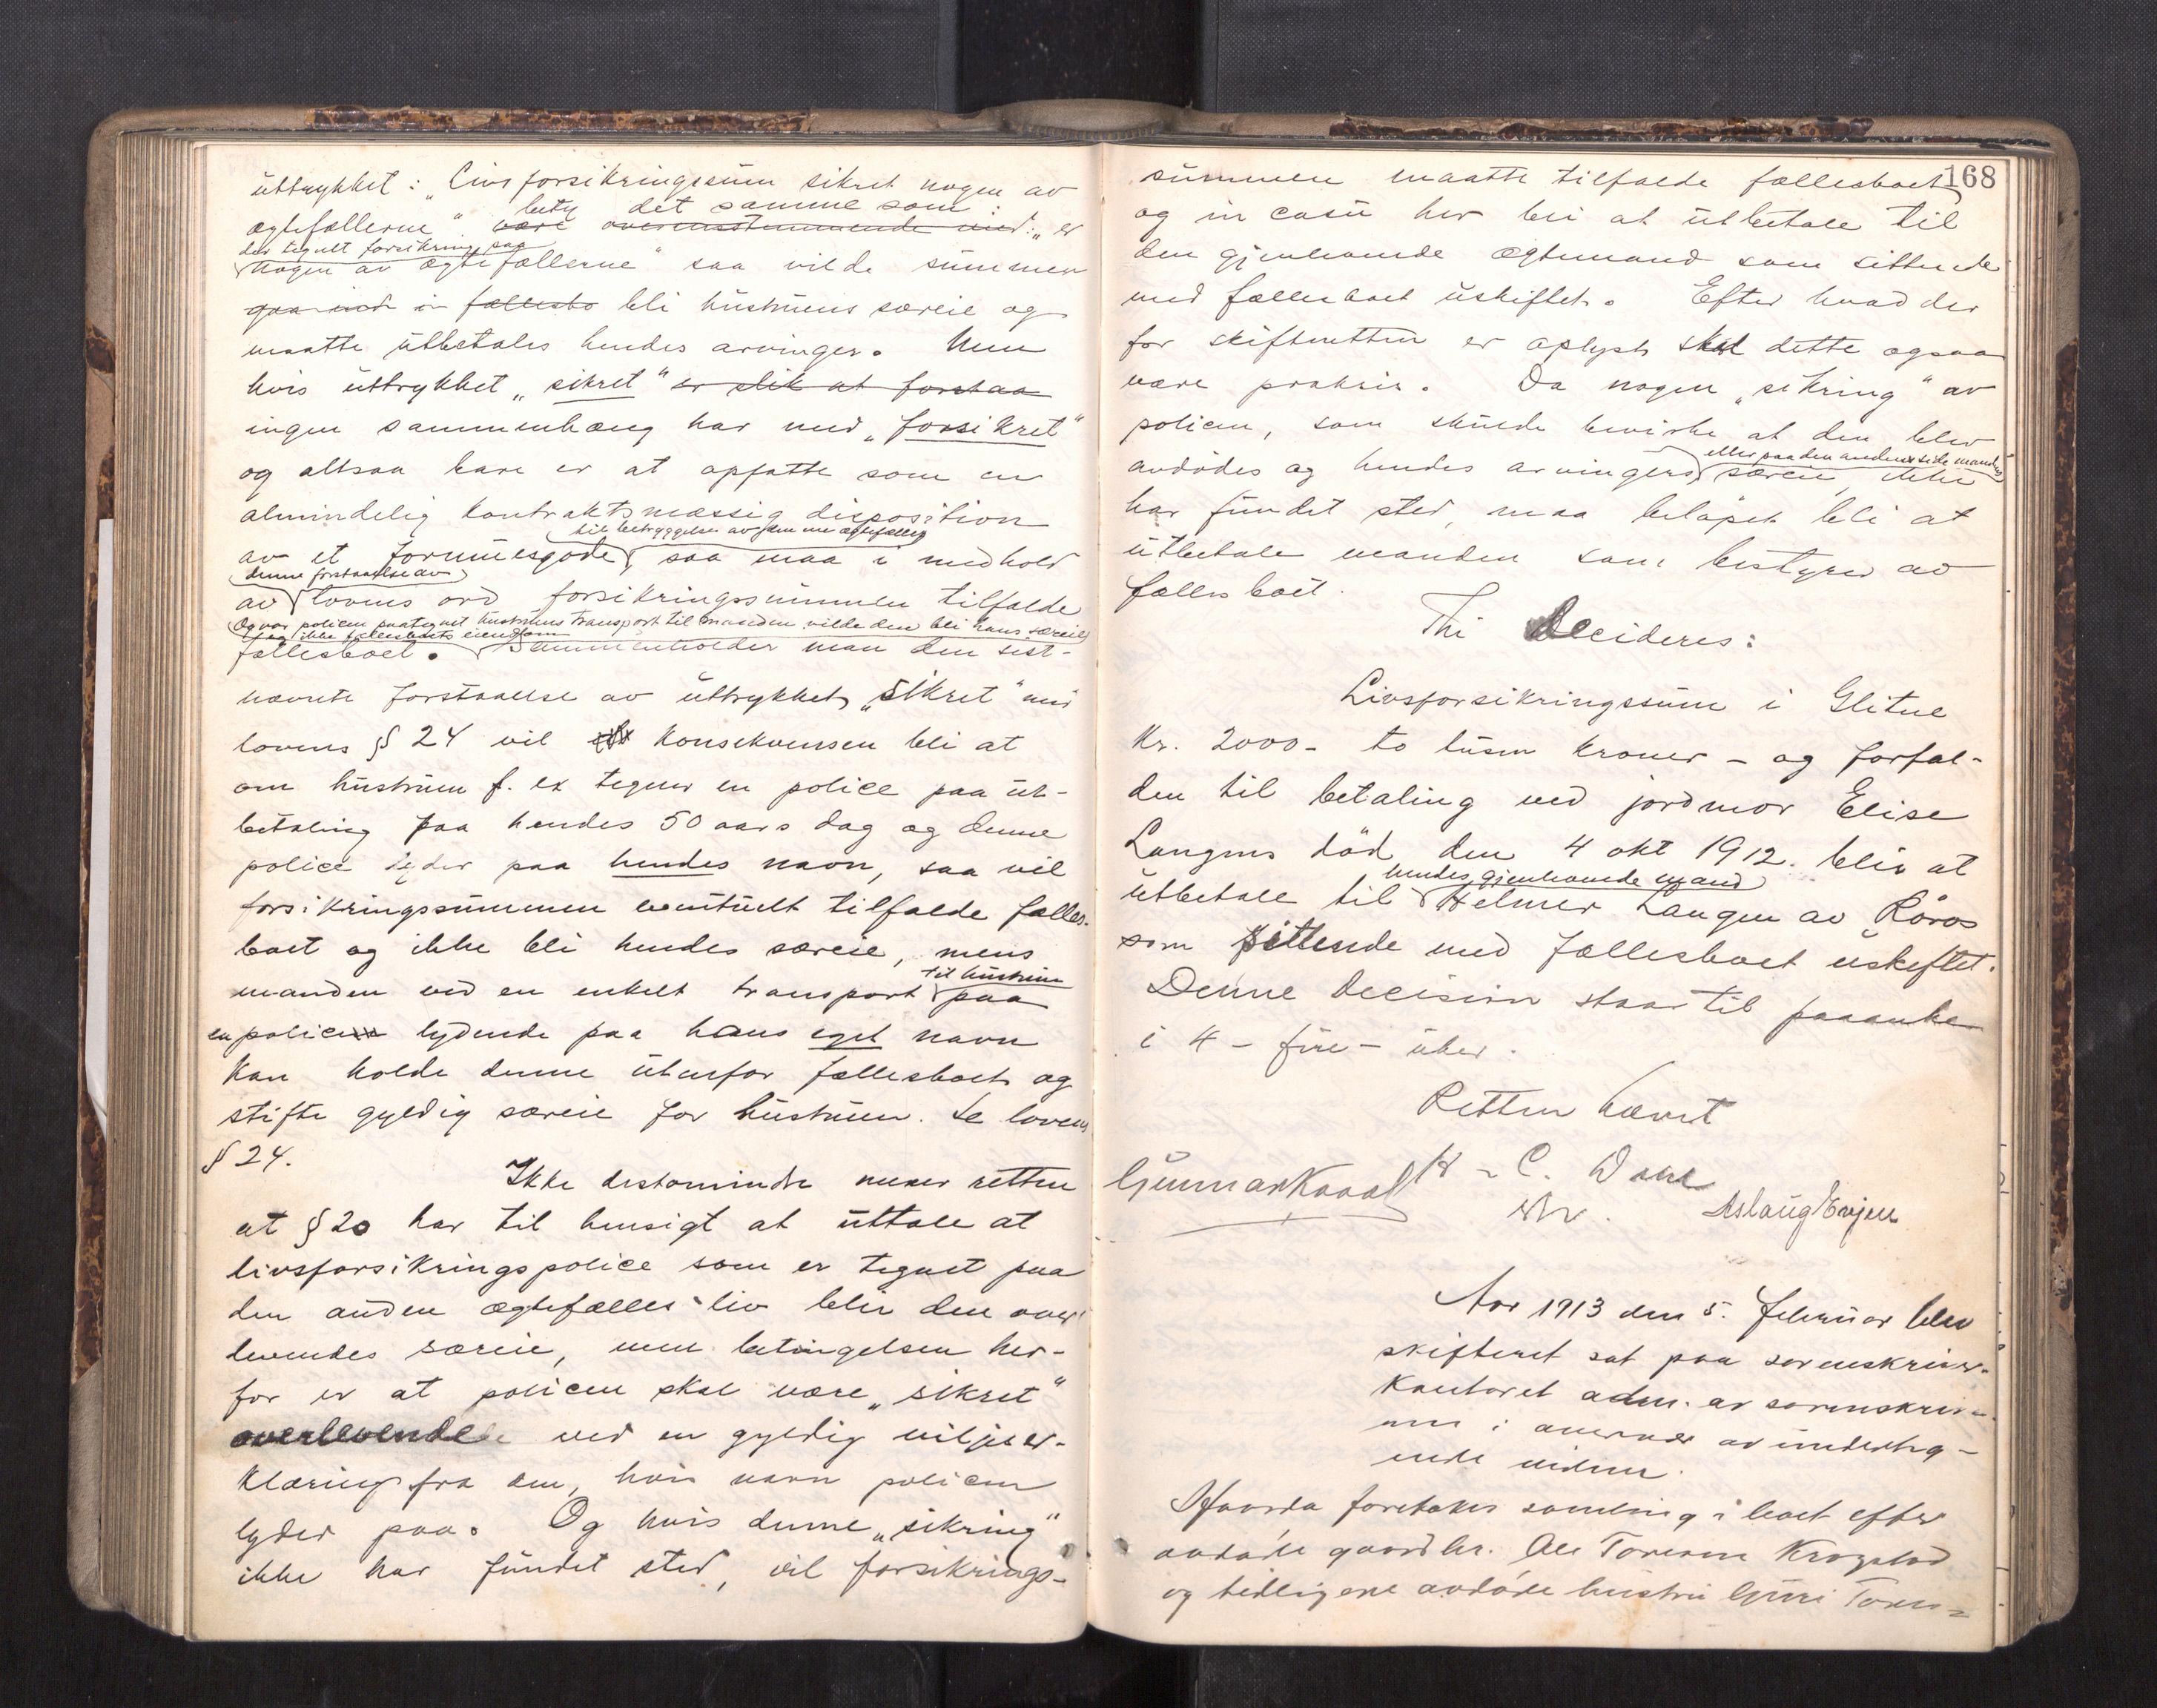 uttrykket: „Livsforsikringssum sikret nogen av
egtefællerne" bety det samme som: „er
være overensstemmende med:
der tegnet forsikring paa
nogen av ægtefællerne" saa vilde summen
gaa ind i fællesbo bli hustruens særeie og
maatte utbetales hendes arvinger. Men
hvis uttrykket „sikret" er slik at forstaa
ingen sammenhæng har med „forsikret"
og altsaa bare er at opfatte som en
almindelig kontraktsmæssig disposition
til betryggelse av den ene ægtefælle
av et formuesgode, saa maa i medhold
denne forstaaelse av
av lovens ord forsikringssummen tilfalde
Og var policen paategnet hustruens transport til manden vilde den bli hans særeie
og ikke fællesboets eiendom
fællesboet. Sammenholder man den sist-
nævnte forstaaelse av uttrykket „sikret" med
lovens § 24 vil konsekvensen bli at
om hustruen f. ex tegner en police paa ut-
betaling paa hendes 50 aars dag og denne
police lyder paa hendes navn, saa vil
forsikringssummen eventuelt tilfalde fælles-
boet og ikke bli hendes særeie, mens
til hustruen
manden ved en enkelt transport paa
en policen lydende paa hans eget navn
kan holde denne utenfor fællesboet og
stifte gyldig særeie for hustruen. Se lovens
§ 24.
Ikke destomindre mener retten
at § 20 har til hensigt at uttale at
livsforsikringspolice som er tegnet paa
den anden ægtefælles liv blir den over-
levendes særeie, men betingelsen her-
for er at policen skal være „sikret"
overlevende ved en gyldig viljeser-
klæring fra den, hvis navn policen
lyder paa. Og hvis denne „sikring"
ikke har fundet sted, vil forsikrings-
168
summen maatte tilfalde fællesboet
og in casu her bli at utbetale til
den gjenlevende ægtemand som sittende
med fællesboet uskiftet. Efter hvad der
for skifteretten er oplyst skal dette ogsaa
være praksis. Da nogen „sikring" av
policen, som skulde bevirke at den blev
eller paa den anden side mandens
avdødes og hendes arvingers særeie, ikke
har fundet sted, maa beløpet bli at
utbetale manden som bestyrer av
fællesboet.
Thi Decideres:
Livsforsikringssum i Glitne
Kr. 2000- to tusen kroner - og forfal-
den til betaling ved jordmor Elise
Langens död den 4 okt 1912. blir at
hendes gjenlevende mand
utbetale til Helmer Langen av Röros
som sittende med fællesboet uskiftet.
Denne decision staar til paaanke
i 4 - fire - uker.
Retten hævet
K - C. Dahl
Gunnar Kaaal
Aslaug Evjen
Aar 1913 den 5. februar blev
skifteret sat paa sorenskriver-
kontoret adm. av sorenskrive-
ren i overvær av underteg-
nede vidner.
Hvorda foretokes samling i boet efter
avdøde gaardbr. Ole Toresen Krogstad
og tidligere avdøde hustru Guri Tores-